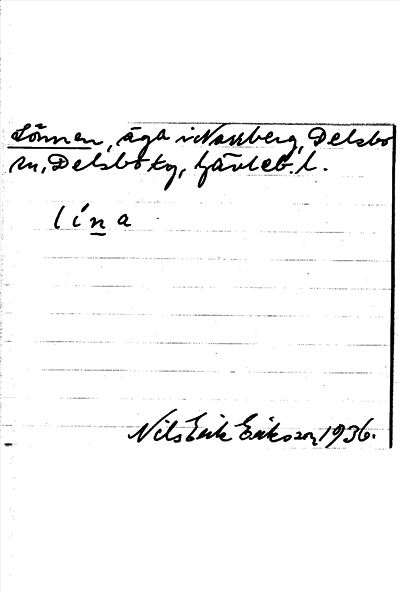 Lönnen, äga i Norrberg, Delsbo
sn, Delsbo tg, Gävleb. l.
lína
Nils Erik Eriksson, 1936.